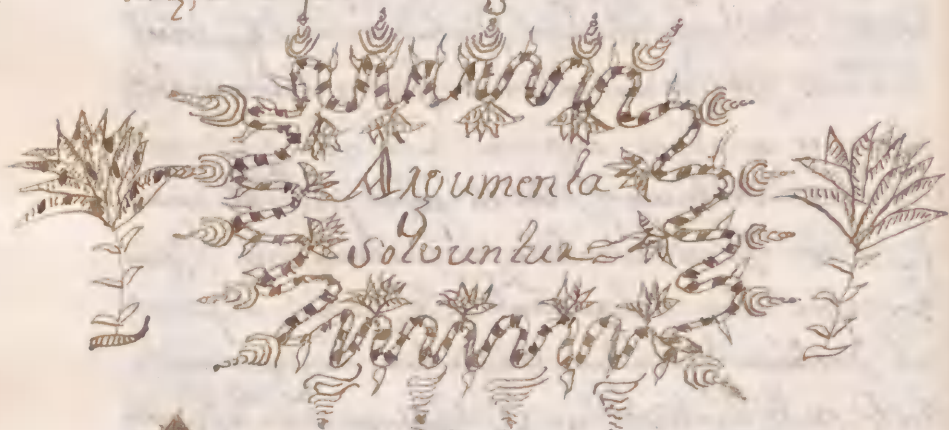 Argumenta
solvuntur=